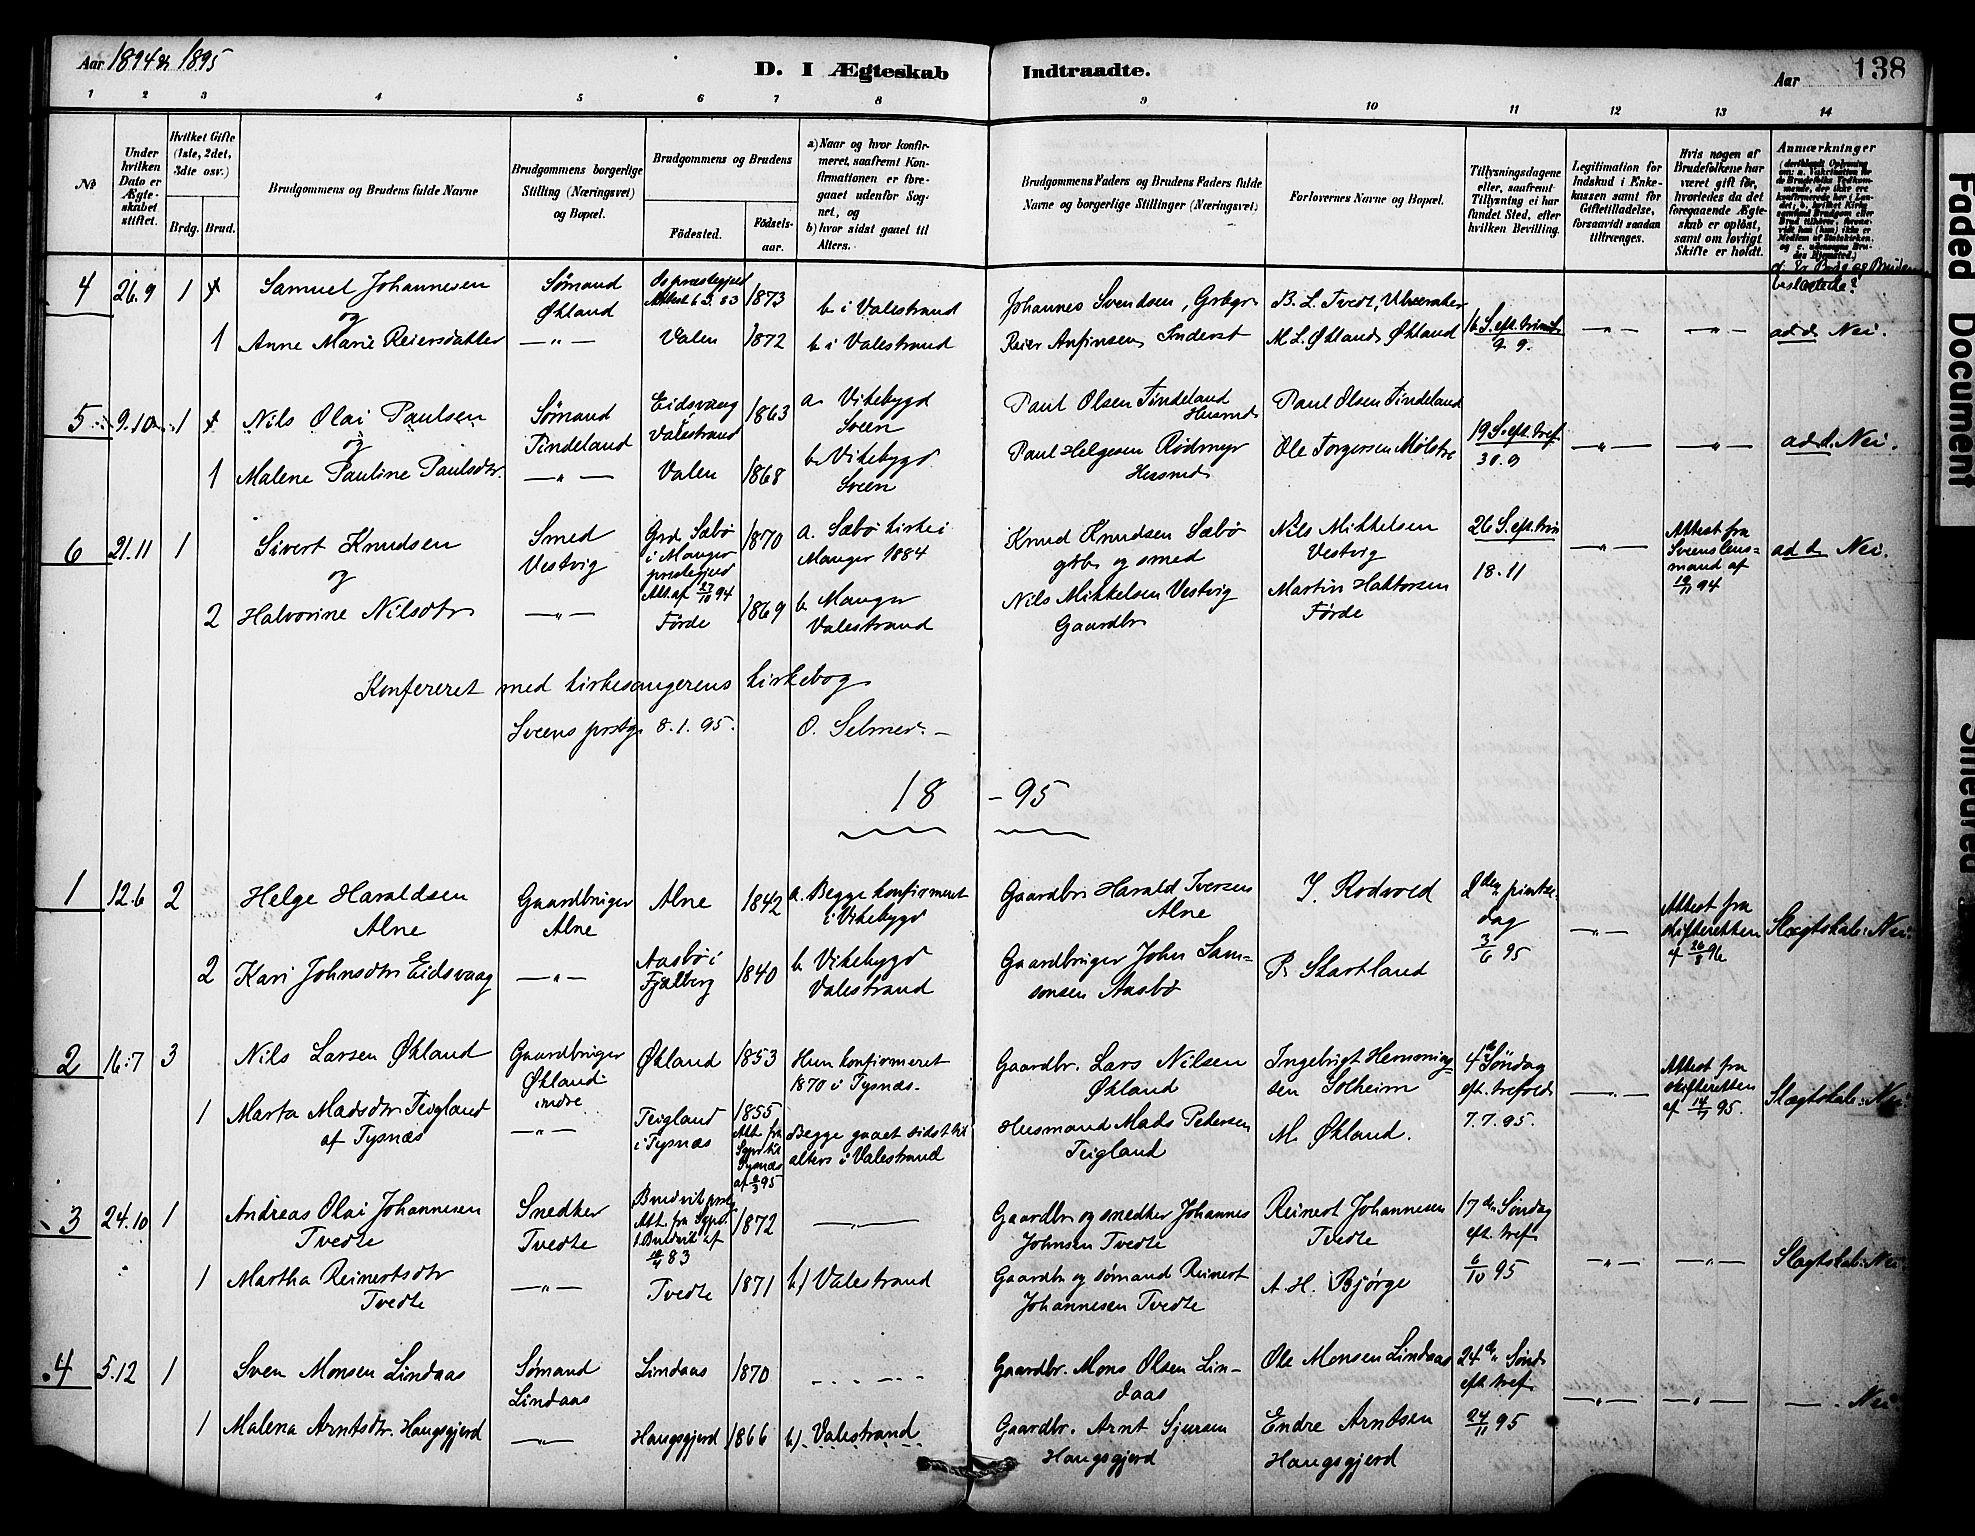 Aar 1894 & 1895
D. I Ægteskab Indtraadte.
Aar
138
1 2 3 4 5 6 7 8 9 10 11 12 13 14
No
Under hvilken Dato er Ægteskabet stiftet.
Hvilket Gifte (1ste, 2det, 3die osv.)
Brdg. Brud.
Brudgommens og Brudens fulde Navne
Brudgommens borgerlige Stilling (Næringsvei) og Bopæl.
Brudgommens og Brudens
Fødested.
Fødselsaar.
a) Naar og hvor konfirmeret, saafremt Konfirmationen er foregaaet udenfor Sognet, og
b) hvor sidst gaaet til Alters.
Brudgommens Faders og Brudens Faders fulde Navne og borgerlige Stillinger (Næringsvei)
Forlovernes Navne og Bopæl.
Tillysningsdagene eller, saafremt Tillysning ei har fundet Sted, efter hvilken Bevilling.
Legitimation for Indskud i Enkekassen samt for Giftetilladelse, forsaavidt saadan tiltrænges.
Hvis nogen af Brudefolkene har været gift før, hvorledes da det foregaaende Ægteskab er opløst, samt om lovligt Skifte er holdt.
Anmærkninger
4 26.9 1 Samuel Johannesen Sømand Os præstegjeld 1873 b i Valestrand Johannes Svendsen, Grbgr B. L. Tvedt,
og Økland
1 Anne Marie Reiersdatter —"— Valen 1872 b. i Valestrand Reier Anfinsen Inderst M. L. Økland, Økland 16 S. eft. trinit —"— —"— ad d. Nei.
5 9.10 1 Nils Olai Paulsen Sømand Eidsvaag 1863 a. Vikebygd Paul Olsen Tindeland Paul Olsen Tindeland 19 S. eft. tref
og Tindeland Valestrand Sveen Husmd
30.9 —"— —"— ad d. Nei.
1 Malene Pauline Paulsdtr. —"— Valen 1868 b. Vikebygd Paul Helgesen Rødmyr Ole Torgersen Mølstre
Sveen Husmd
6 21.11 1 Sivert Knudsen Smed Grd. Sæbø 1870 a. Sæbø kirke i Knud Knudsen Sæbø Nils Mikkelsen 26 S. eft. trin Attest fra
og Vestvig i Manger Manger 1884 gbr og smed Vestvig 18.11 —"— Sveens lens= ad d. Nei.
præstegjeld mand af
Att. af 27/10 94 19/11 94
2 Halvorine Nilsdtr —"— Førde 1869 b. Manger Nils Mikkelsen Vestvig Martin Haktorsen
Valestrand Gaardbr Førde
Konfereret med kirkesangerens kirkebog
Sveens prstgj. 8.1.95. O. Selmer.
18 - 95
1 12.6 2 Helge Haraldsen Gaardbruger Alne 1842 a. Begge konfirmeret Gaardbr Harald Iversen Y. Rodvold 2den pintse-
Alne Alne i Vikebygd Alne dag
3/6 95 —"— Attest fra skifteretten Slægtskab: Nei.
2 Kari Johnsdtr Eidsvaag —"— Aasbø i 1840 b. Vikebygd Gaardbruger John Sam- P. Skartland
Fjelberg Valestrand sonsen Aasbø
2 16.7 3 Nils Larsen Økland Gaardbruger Økland 1853 Hun konfirmeret Gaardbr. Lars Nilsen Ingebrigt Henning- 4de Søndag Attest fra
Økland 1870 i Tysnæs. Økland sen Solheim eft. trefold —"— skifteretten Slægtskab: Nei.
indre 7.7.95. af 14/7 95.
1 Marta Madsdtr Teigland —"— Teigland 1855 Begge gaaet sidst til Husmand Mads Pedersen M. Økland.
af Tysnæs i Tysnæs Att. fra alters i Valestrand Teigland
3 24.10 1 Andreas Olai Johannesen Snedker 1872 —"— Gaardbr og snedker Johannes Reinert Johannesen 17de Søndag
Tvedte Tvedte Johnsen Tvedte Tvedte eft. tref
6/10 95 —"— —"— Slægtskab: Nei.
1 Martha Reinertsdtr —"— Tvedte 1871 b) Valestrand Gaardbr og sømand Reinert A. H. Bjørge
Tvedte Johannesen Tvedte
4 5.12 1 Sven Monsen Lindaas Sømand Lindaas 1870 —"— Gaardbr. Mons Olsen Lin- Ole Monsen Lindaas 24de Sønd.
Lindaas daas eft. tref
24/11 95 —"— —"— — . Nei
1 Malena Arntsdtr. Haugsgjerd —"— Haugsgjerd 1866 b). Valestrand Gaardbr. Arnt Sjursen Endre Arntsen
Haugsgjerd Haugsgjerd
Faded Document
Smeared